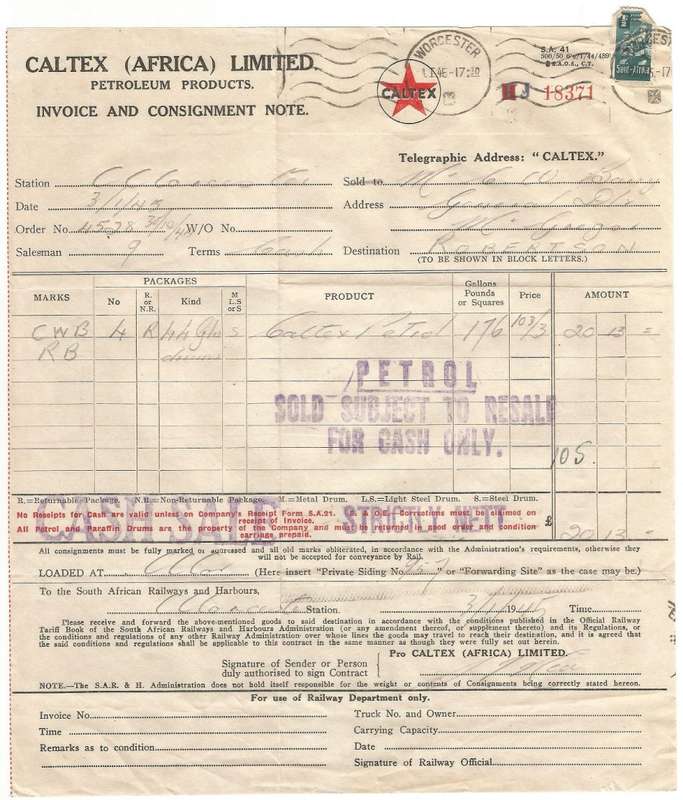 CALTEX (AFRICA) LIMITED.
PETROLEUM PRODUCTS.
INVOICE AND CONSIGNMENT NOTE.
WORCESTER
CALTEX
S.A. 41
HJ 18371
Telegraphic Address: "CALTEX."
Station
Sold to
Date 3/1/45
Address
Order No. 4528 W/O No.
Salesman 9 Terms Cash
Destination ROBERTSON
(TO BE SHOWN IN BLOCK LETTERS.)
MARKS
PACKAGES
No
R. or N.R.
Kind
M L.S or S
PRODUCT
Gallons Pounds or Squares
Price
AMOUNT
CWB 4 R 44 S Caltex Petrol 176 103/3 20 13 -
RB drums
PETROL
SOLD SUBJECT TO RESALE
FOR CASH ONLY.
105.
R.=Returnable Package. N.R.=Non-Returnable Package. M.=Metal Drum. L.S.=Light Steel Drum. S.=Steel Drum.
CASH SALE STRICTLY NETT
No Receipts for Cash are valid unless on Company's Receipt Form S.A.21. Corrections must be claimed on
receipt of Invoice.
All Petrol and Paraffin Drums are the property of the Company and must be returned in good order and condition
carriage prepaid.
£ 20 13 -
All consignments must be fully marked or addressed and all old marks obliterated, in accordance with the Administration's requirements, otherwise they
will not be accepted for conveyance by Rail.
LOADED AT (Here insert "Private Siding No. " or "Forwarding Site" as the case may be.)
To the South African Railways and Harbours,
Worcester Station. 3/1/1945 Time
Please receive and forward the above-mentioned goods to said destination in accordance with the conditions published in the Official Railway
Tariff Book of the South African Railways and Harbours Administration (or any amendment thereof, or supplement thereto) and its Regulations, or
the conditions and regulations of any other Railway Administration over whose lines the goods may travel to reach their destination, and it is agreed that
the said conditions and regulations shall be applicable to this contract in the same manner as though they were fully set out herein.
Pro CALTEX (AFRICA) LIMITED.
Signature of Sender or Person
duly authorised to sign Contract
NOTE.—The S.A.R. & H. Administration does not hold itself responsible for the weight or contents of Consignments being correctly stated hereon.
For use of Railway Department only.
Invoice No.
Truck No. and Owner
Time
Carrying Capacity
Remarks as to condition
Date
Signature of Railway Official